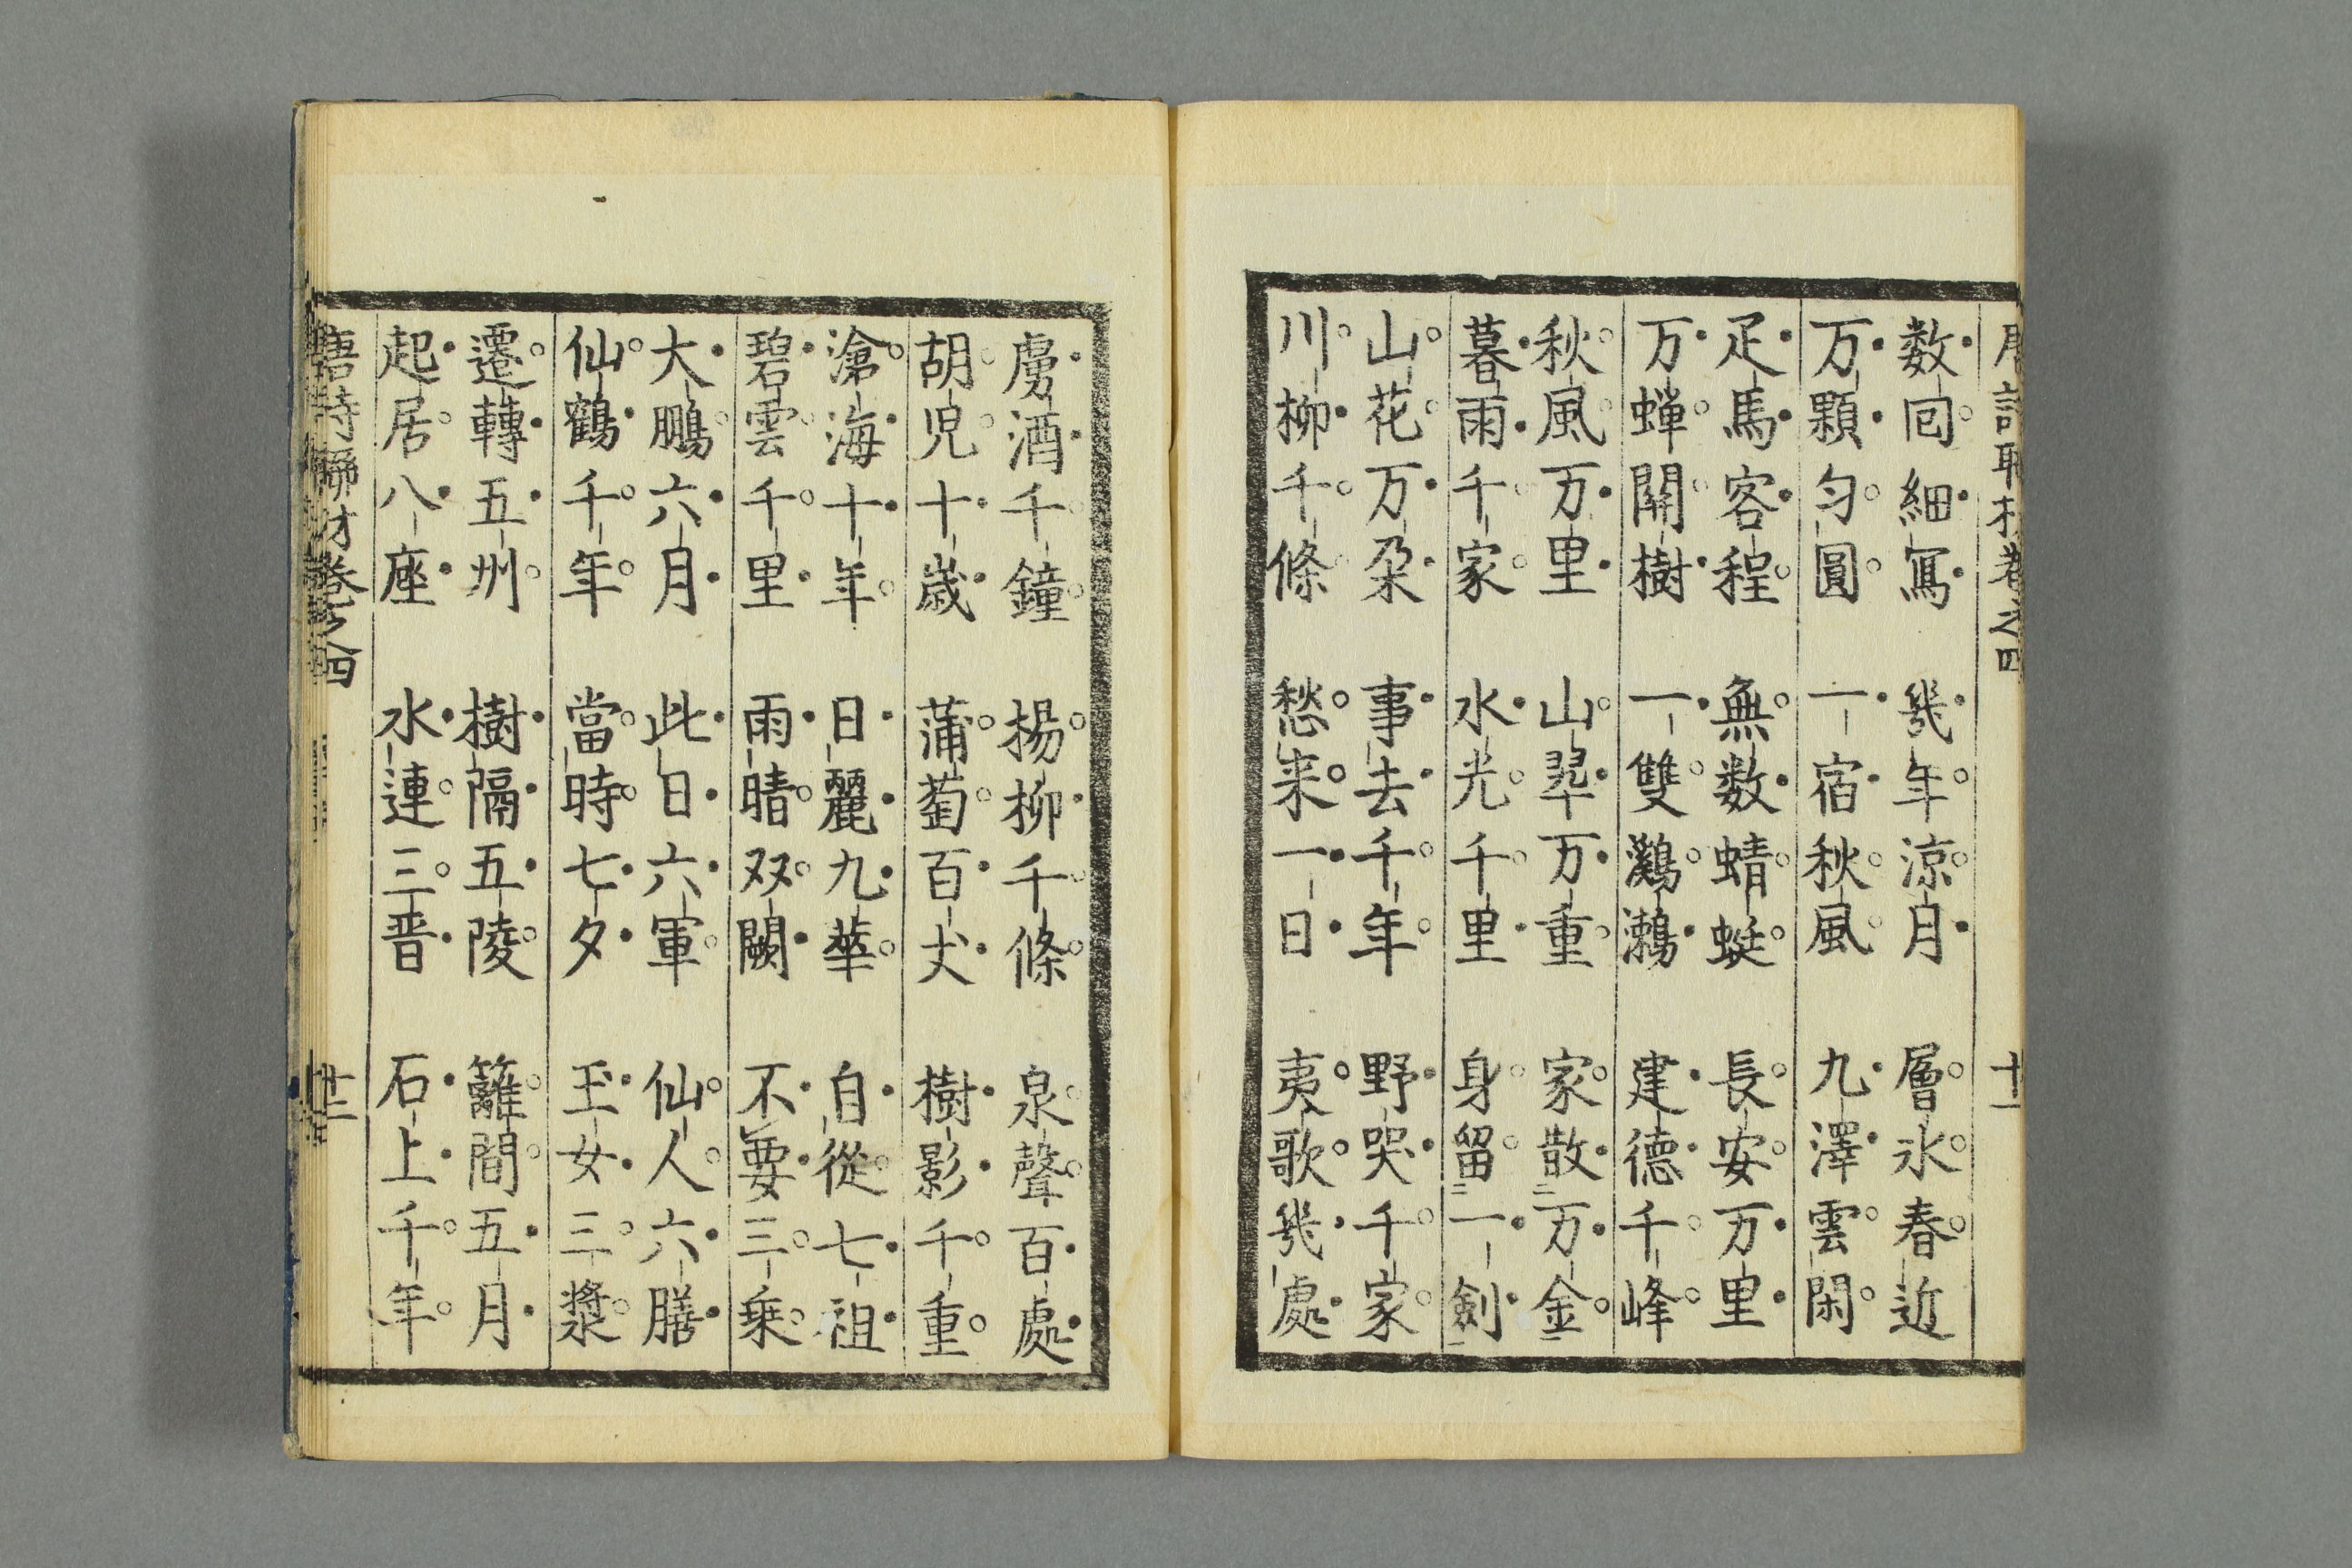 唐詩聯材卷之四 十一
数囘細寫 幾年涼月 層氷春近
万顆匀圓 一宿秋風 九澤雲閑
疋馬客程 無数蜻蜓 長安万里
万蟬關樹 一雙鸂鶒 建德千峰
秋風万里 山翠万重 家散万金
暮雨千家 水光千里 身留一劍
山花万朶 事去千年 野哭千家
川柳千條 愁来一日 夷歌幾處
虜酒千鐘 楊柳千條 泉聲百處
胡児十歳 蒲萄百丈 樹影千重
滄海十年 日麗九華 自從七祖
碧雲千里 雨晴双闕 不要三乗
大鵬六月 此日六軍 仙人六膳
仙鶴千年 當時七夕 玉女三漿
遷轉五州 樹隔五陵 籬間五月
起居八座 水連三晋 石上千年
唐詩聯材卷之四 十二